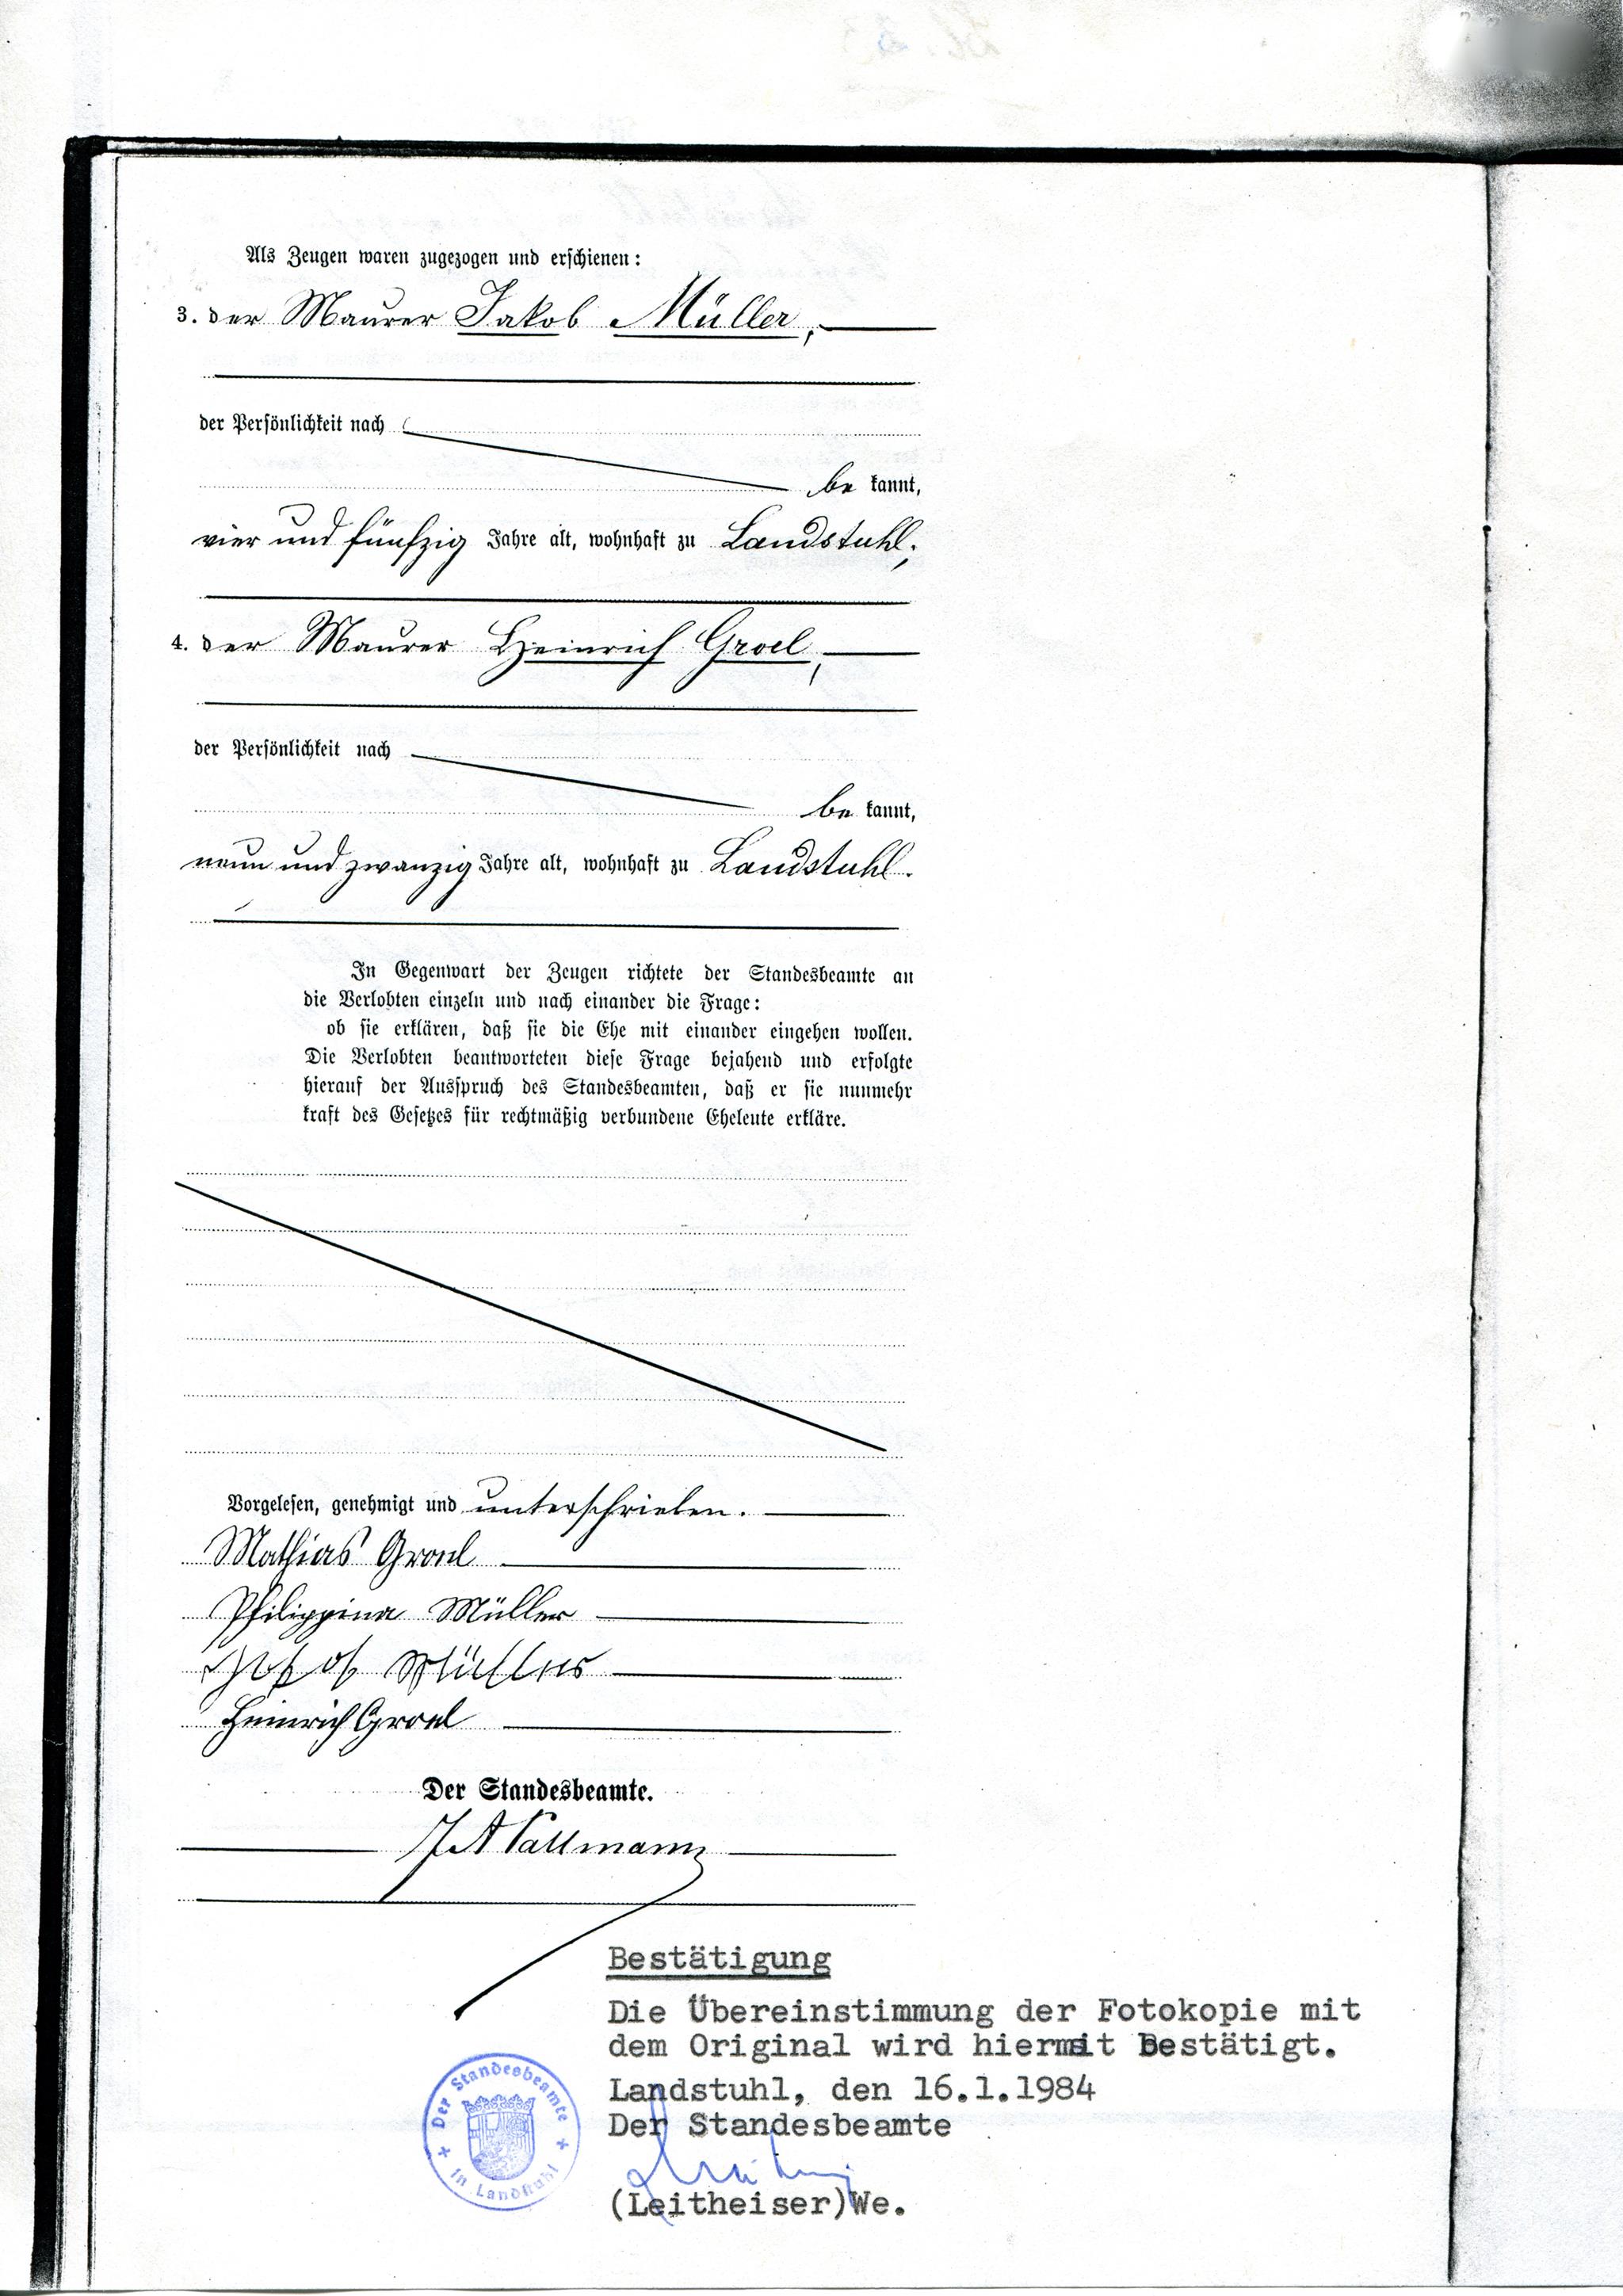 Als Zeugen waren zugezogen und erschienen:
3. der Maurer Jakob Müller,
der Persönlichkeit nach
be kannt,
vier und fünfzig Jahre alt, wohnhaft zu Landstuhl;
4. der Maurer Heinrich Groel,
der Persönlichkeit nach
be kannt,
neun und zwanzig Jahre alt, wohnhaft zu Landstuhl.
In Gegenwart der Zeugen richtete der Standesbeamte an
die Verlobten einzeln und nach einander die Frage:
ob sie erklären, daß sie die Ehe mit einander eingehen wollen.
Die Verlobten beantworteten diese Frage bejahend und erfolgte
hierauf der Ausspruch des Standesbeamten, daß er sie nunmehr
kraft des Gesetzes für rechtmäßig verbundene Eheleute erkläre.
Vorgelesen, genehmigt und unterschrieben.
Mathias Groel
Philippina Müller
Jakob Müller
Heinrich Groel
Der Standesbeamte.
Pallmann
Bestätigung
Die Übereinstimmung der Fotokopie mit
dem Original wird hiermit bestätigt.
Landstuhl, den 16.1.1984
Der Standesbeamte
(Leitheiser)We.
Der Standesbeamte
in Landstuhl